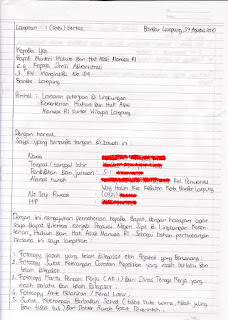 Lampiran : 1 (Satu) berkas Bandar Lampung, 29 Agustus 2010
Kepada Yth
Bapak Menteri Hukum Dan Hak Asasi Manusia RI
c.q. Kepala Divisi Administrasi
Jl. RW. Monginsidi No. 184
Bandar Lampung
Perihal : Lamaran pekerjaan Di Lingkungan
Kementerian Hukum Dan Hak Asasi
Manusia RI Kantor Wilayah Lampung
Dengan hormat,
Saya yang bertanda tangan di bawah ini :
Nama
Tempat / tanggal lahir
Pendidikan Dan jurusan : S-1
Alamat rumah Kel. Penawar
Way Halim Kec. Kedaton Kota Bandar Lampung
No. Telp. Rumah : (0721)
HP
Dengan ini mengajukan permohonan kepada Bapak, dengan harapan agar
saya dapat diterima menjadi Pegawai Negeri Sipil Di Lingkungan Kemen-
terian Hukum Dan Hak Asasi Manusia RI. Sebagai bahan pertimbangan
bersama ini saya lampirkan :
1. Fotocopy ijazah yang telah dilegalisir oleh Pejabat yang berwenang
2. Fotocopy Surat Keterangan Catatan Kepolisian yang masih berlaku Dan
telah dilegalisir
3. Fotocopy Kartu Pencari Kerja (AK-1) Dari Dinas Tenaga Kerja yang
masih berlaku Dan telah dilegalisir
4. Fotocopy Akte Kelahiran / Kenal Lahir
5. Surat Keterangan Berbadan Sehat (tidak buta warna, tidak tuli
Dan tidak bisu) Dari Dokter Rumah Sakit Pemerintah